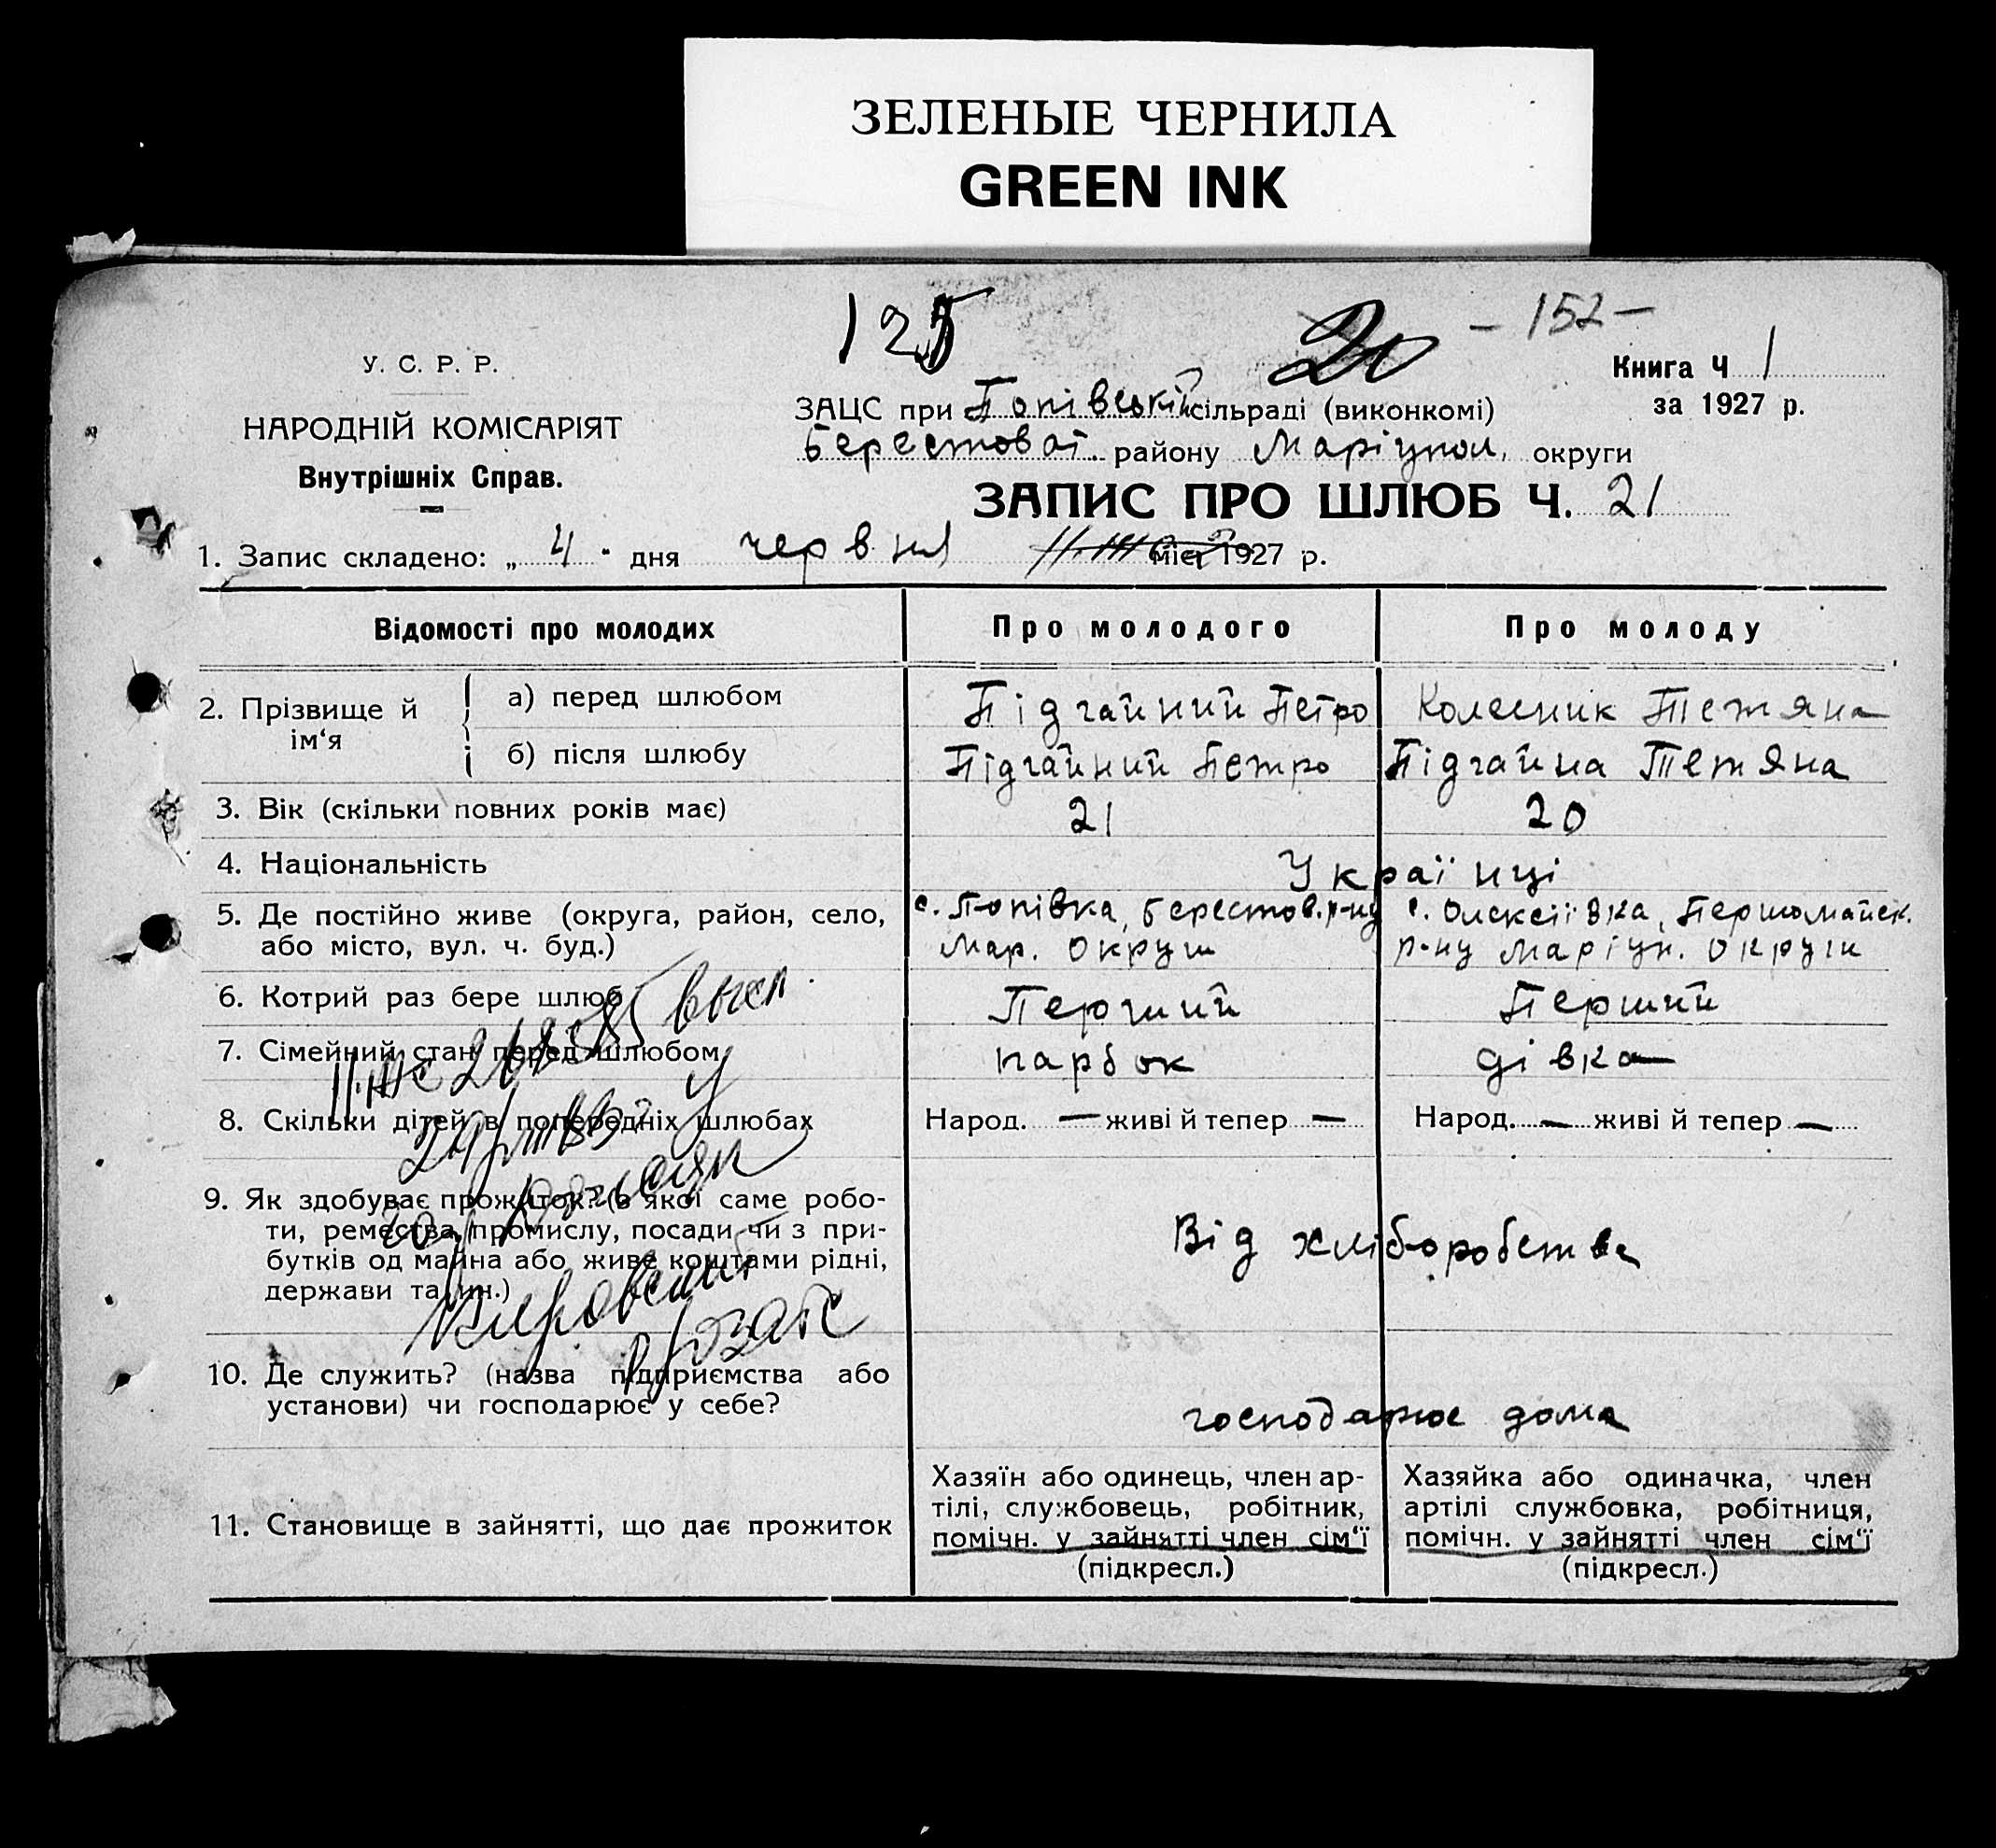 ЗЕЛЕНЫЕ ЧЕРНИЛА
GREEN INK
125
20
– 152 –
У. С. Р. Р.
НАРОДНІЙ КОМІСАРІЯТ
Внутрішніх Справ.
Книга Ч 1
за 1927 р.
ЗАЦС при Попівській сільраді (виконкомі)
Берестоват. району Маріупол. округи
ЗАПИС ПРО ШЛЮБ Ч. 21
1. Запис складено: „ 4 " дня червня міся 1927 р.
Відомості про молодих
Про молодого
Про молоду
2. Прізвище й ім‘я
а) перед шлюбом
Підгайний Петро
Колесник Тетяна
б) після шлюбу
Підгайний Петро
Підгайна Тетяна
3. Вік (скільки повних років має)
21
20
4. Національність
Українці
5. Де постійно живе (округа, район, село,
або місто, вул. ч. буд.)
с. Попівка, Берестов. р-ну
Мар. округи
с. Олексіївка, Першомайск.
р-ну Маріуп. округи
6. Котрий раз бере шлюб
Перший
Перший
7. Сімейний стан перед шлюбом
парбок
дівка
8. Скільки дітей в попередніх шлюбах
Народ. — живі й тепер —
Народ. — живі й тепер —
9. Як здобуває прожиток? (з якої саме робо-
ти, ремества, промислу, посади чи з при-
бутків од майна або живе коштами рідні,
держави та ин.)
Від хліборобства
10. Де служить? (назва підприємства або
установи) чи господарює у себе?
господарює дома
11. Становище в зайнятті, що дає прожиток
Хазяїн або одинець, член ар-
тілі, службовець, робітник,
помічн. у зайнятті член сім‘ї
(підкресл.)
Хазяйка або одиначка, член
артілі службовка, робітниця,
помічн. у зайнятті член сім‘ї
(підкресл.)